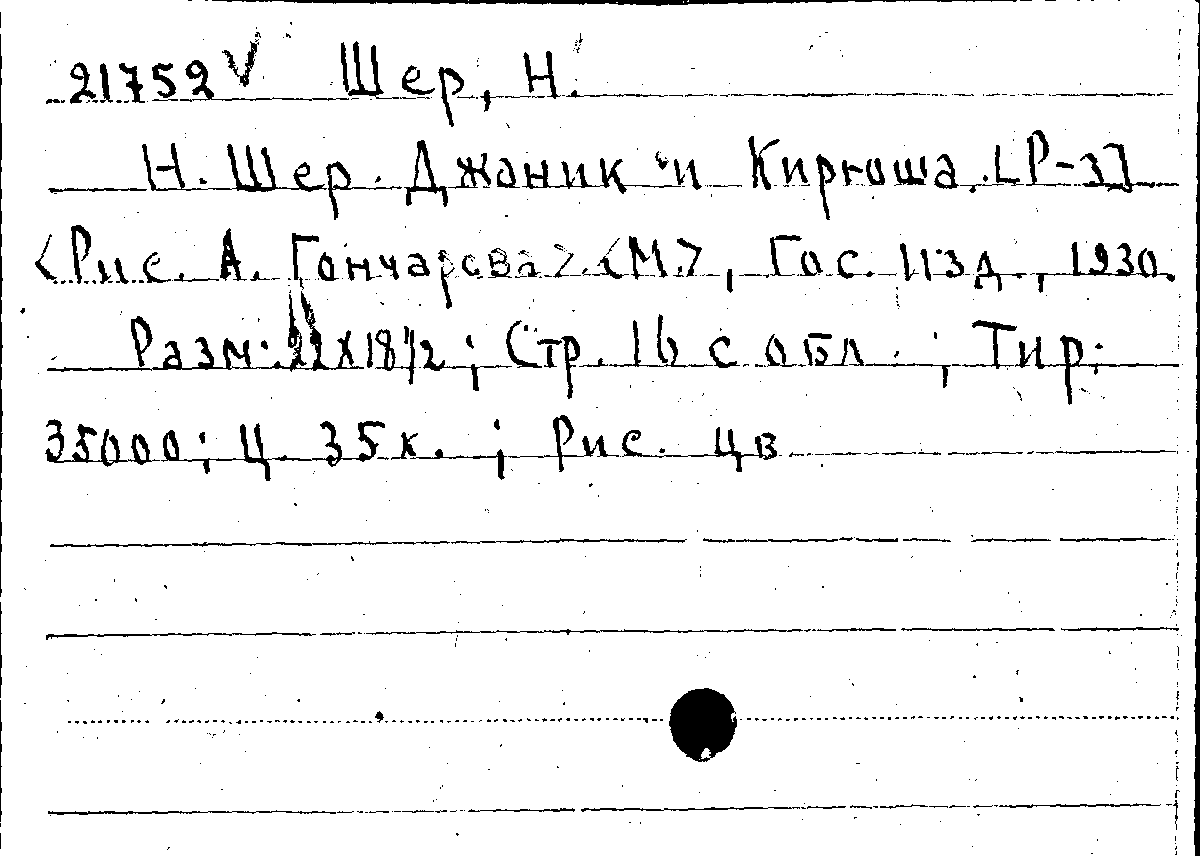 21752 V Шер, Н.
Н. Шер. Джаник и Киргоша. [Р-з]
<Рис. А. Гончарова>. <М.>, Гос. изд., 1930.
Разм. 22х18 1/2; Стр. 16 с обл.; Тир.
35000; Ц. 35 к.; Рис. цв